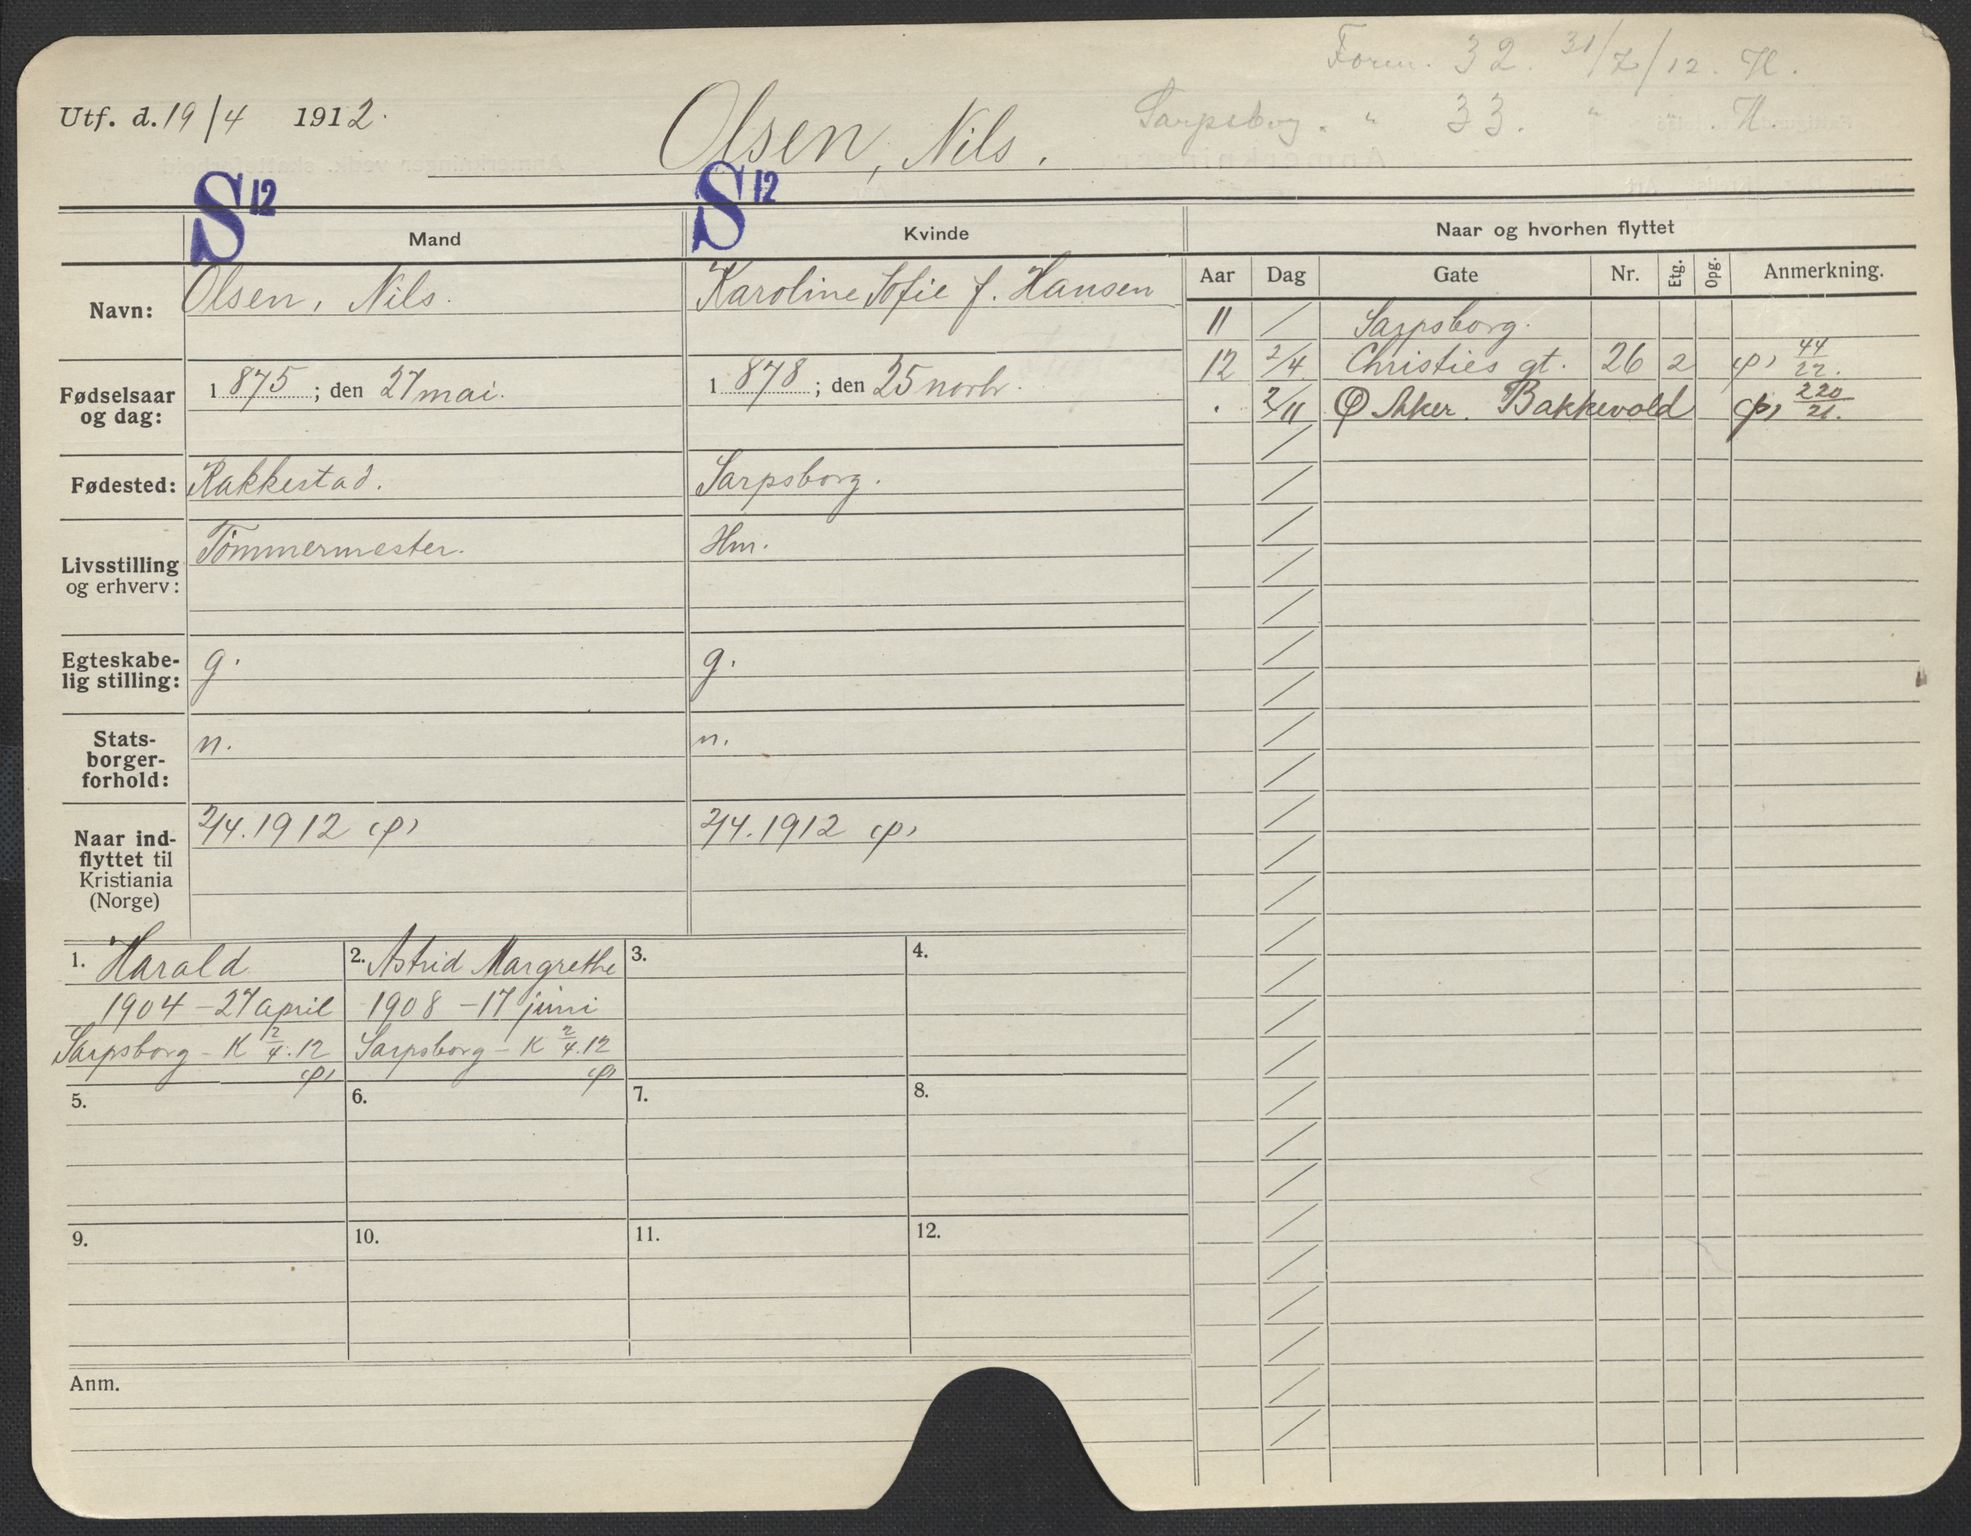 Form. 32. 31/7/12. H.
Utf. d. 19/4 1912.
Olsen, Nils.
Sarpsborg. " 33. " . H.
S 12
S 12
Mand
Kvinde
Naar og hvorhen flyttet
Navn:
Olsen, Nils.
Karoline Sofie f. Hansen
Fødselsaar og dag:
1875; den 27 mai.
1878; den 25 novbr.
Fødested:
Rakkestad.
Sarpsborg.
Livsstilling og erhverv:
Tømmermester.
Hm.
Egteskabe-
lig stilling:
g.
g.
Stats-
borger-
forhold:
n.
n.
Naar ind-
flyttet til
Kristiania
(Norge)
2/4.1912 (p)
2/4.1912 (p)
Aar Dag Gate Nr. Etg. Opg. Anmerkning.
11 / Sarpsborg.
12 2/4 Christies gt. 26 2 (p) 44/22.
. 2/11 Aker. Bakkevold (p) 220/21.
1. Harald
1904 - 27 april
Sarpsborg - K 2/4.12
(p)
2. Astrid Margrethe
1908 - 17 juni
Sarpsborg - K 2/4.12
(p)
3.
4.
5.
6.
7.
8.
9.
10.
11.
12.
Anm.